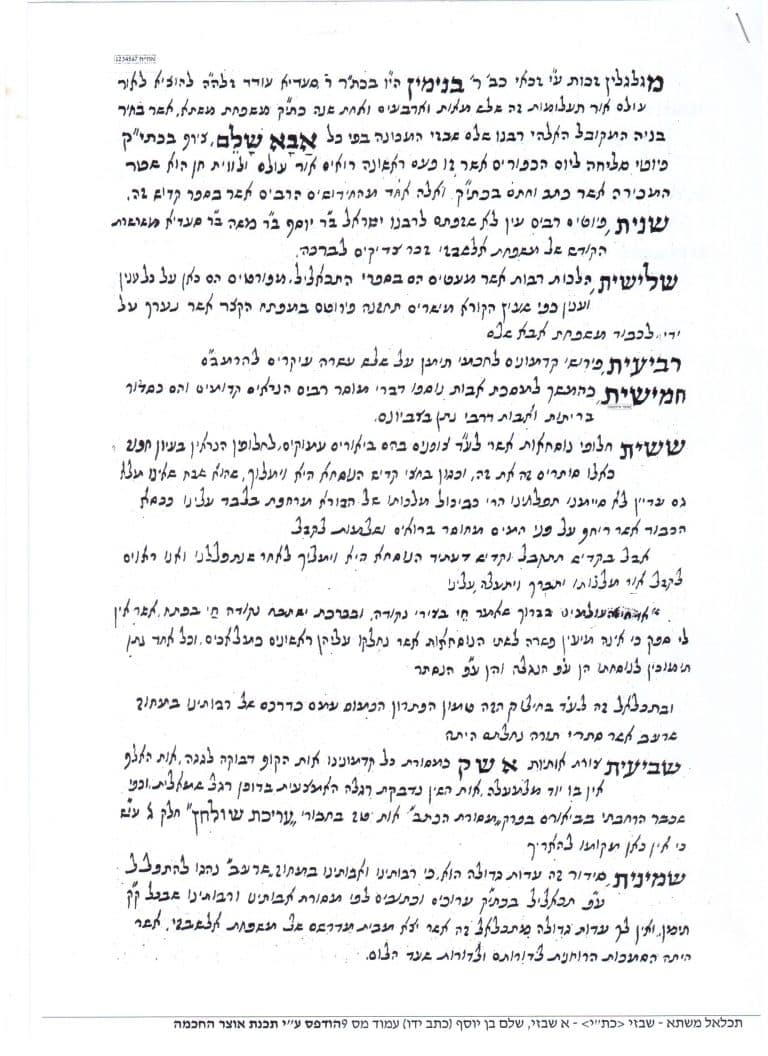 אח"ח 1234567
מגלגלין זכות ע"י זכאי כב' ר' בנימין הי"ו בכת"ר ר' סעדיא עודד זלה"ה להוציא לאור
עולם אור תעלומות זה שלש מאות וארבעים ואחת שנה כת"ק משפחת משתא, אשר בחיר
בניה המקובל האלהי רבנו שלם שבזי המכונה בפי כל אבא שלם, צירף בכתי"ק
פיוטי סליחה ליום הכפורים אשר זו פעם ראשונה רואים אור עולם ולווית חן הוא שטר
המכירה אשר כתב וחתם בכת"ק. ואלה אחד מהחידושים הרבים אשר בספר קדוש זה.
שנית, פיוטים רבים עין לא שזפתם לרבנו ישראל ב"ר יוסף ב"ר משה ב"ר סעדיא משרשות
הקודש של משפחת אלשבזי זכר צדיקים לברכה.
שלישית, הלכות רבות אשר מעטים הם בספרי התכאליל, מפורטים הם כאן על כל ענין
וענין כפי שיבין הקורא מישרים תחזנה פירוטם במפתח הקצר אשר נערך על
ידי לכבוד משפחת אבא שלם
רביעית, פירושי קדמונים לחכמי תימן על שלש עשרה עיקרים להרמב"ם
חמישית, כהמשך למסכת אבות נוספו דברי מוסר רבים הנראים קדומים והם כסדור
ברייתות ואבות דרבי נתן בצביונם.
ששית חלופי נוסחאות אשר לע"ד צופנים בהם ביאורים עמוקים, לחלופין הנראין בעיון חפוז
כאלו סותרים זה את זה, וכגון בחצי קדיש הנוסחא היא וימלוך, שהוא שבח שאינו מלא
גם עדיין לא סיימנו תפלתינו הרי כביכול מלכותו של הבורא מרחפת בלבד עלינו ככסא
הכבוד אשר ריחף על פני המים מחוסר ברואים ונשמות לקבל
אבל בקדיש תתקבל וקדיש דעתיד הנוסחא היא וימליך לאחר שנתפללנו ואנו ראוים
לקבל אור מלכותו יתברך ויתעלה עלינו
עולמים בברוך שאמר חי בצירי נקודה, ובברכת ישתבח נקודה חי בפתח, אשר אין
לי ספק כי אינה תמיהין פשרה לשתי הנוסחאות אשר נחלקו עליהן ראשונים כמלאכים, וכל אחד נתן
תימוכין לנוסחתו הן ע"פ הנגלה והן ע"פ הנסתר
ובתכלאל זה לע"ד בחילוק הזה טמון הפתרון הכמוס עמם כדרכם של רבותינו במחוז
שרעב אשר סתרי תורה נחלתם היתה
שביעית צורת אותיות א ש ק כמסורת כל קדמונינו אות הקוף דבוקה לגגה, אות האלף
אין בו יוד מלמעלה, אות השין נדבקת רגלה האמצעית בדופן רגל שמאלית. וכפי
שכבר הרחבתי בביאורם בפרק "מסורת הכתב" אות טל בחבורי "עריכת שולחן" חלק ג עש
כי אין כאן מקומו להאריך
שמינית, סידור זה עדות גדולה הוא, כי רבותינו ואבותינו במחוז "שרעב" נהגו להתפלל
ע"פ תכאליל בכת"ק ערוכים וכתובים לפי מסורת אבותינו ורבותינו שבכל ק"ק
תימן. ואין לך עדות גדולה מתכלאל זה אשר יצא מבית מדרשם של משפחת אלשבזי, אשר
היתה הסמכות הרוחנית לדורותם ולדורות שעד הלום.
תכלאל משתא - שבזי <כת"י> - א שבזי, שלם בן יוסף (כתב ידו) עמוד מס 9הודפס ע"י תכנת אוצר החכמה